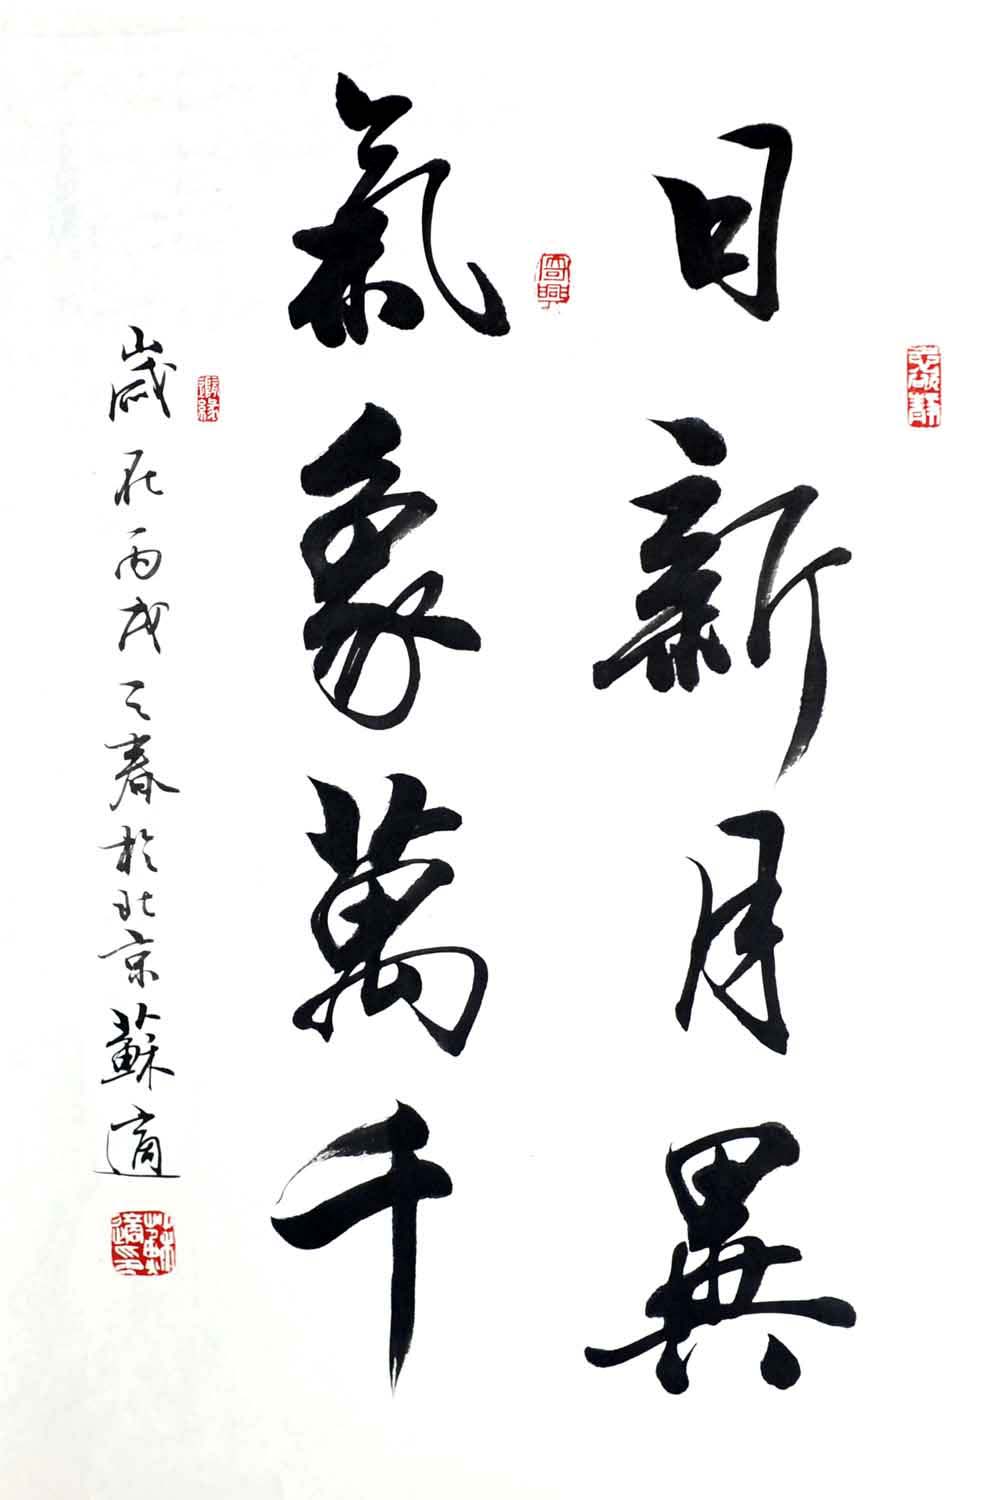 日新月異
氣象萬千
歲在丙戌之春於北京蘇適
蘇適印